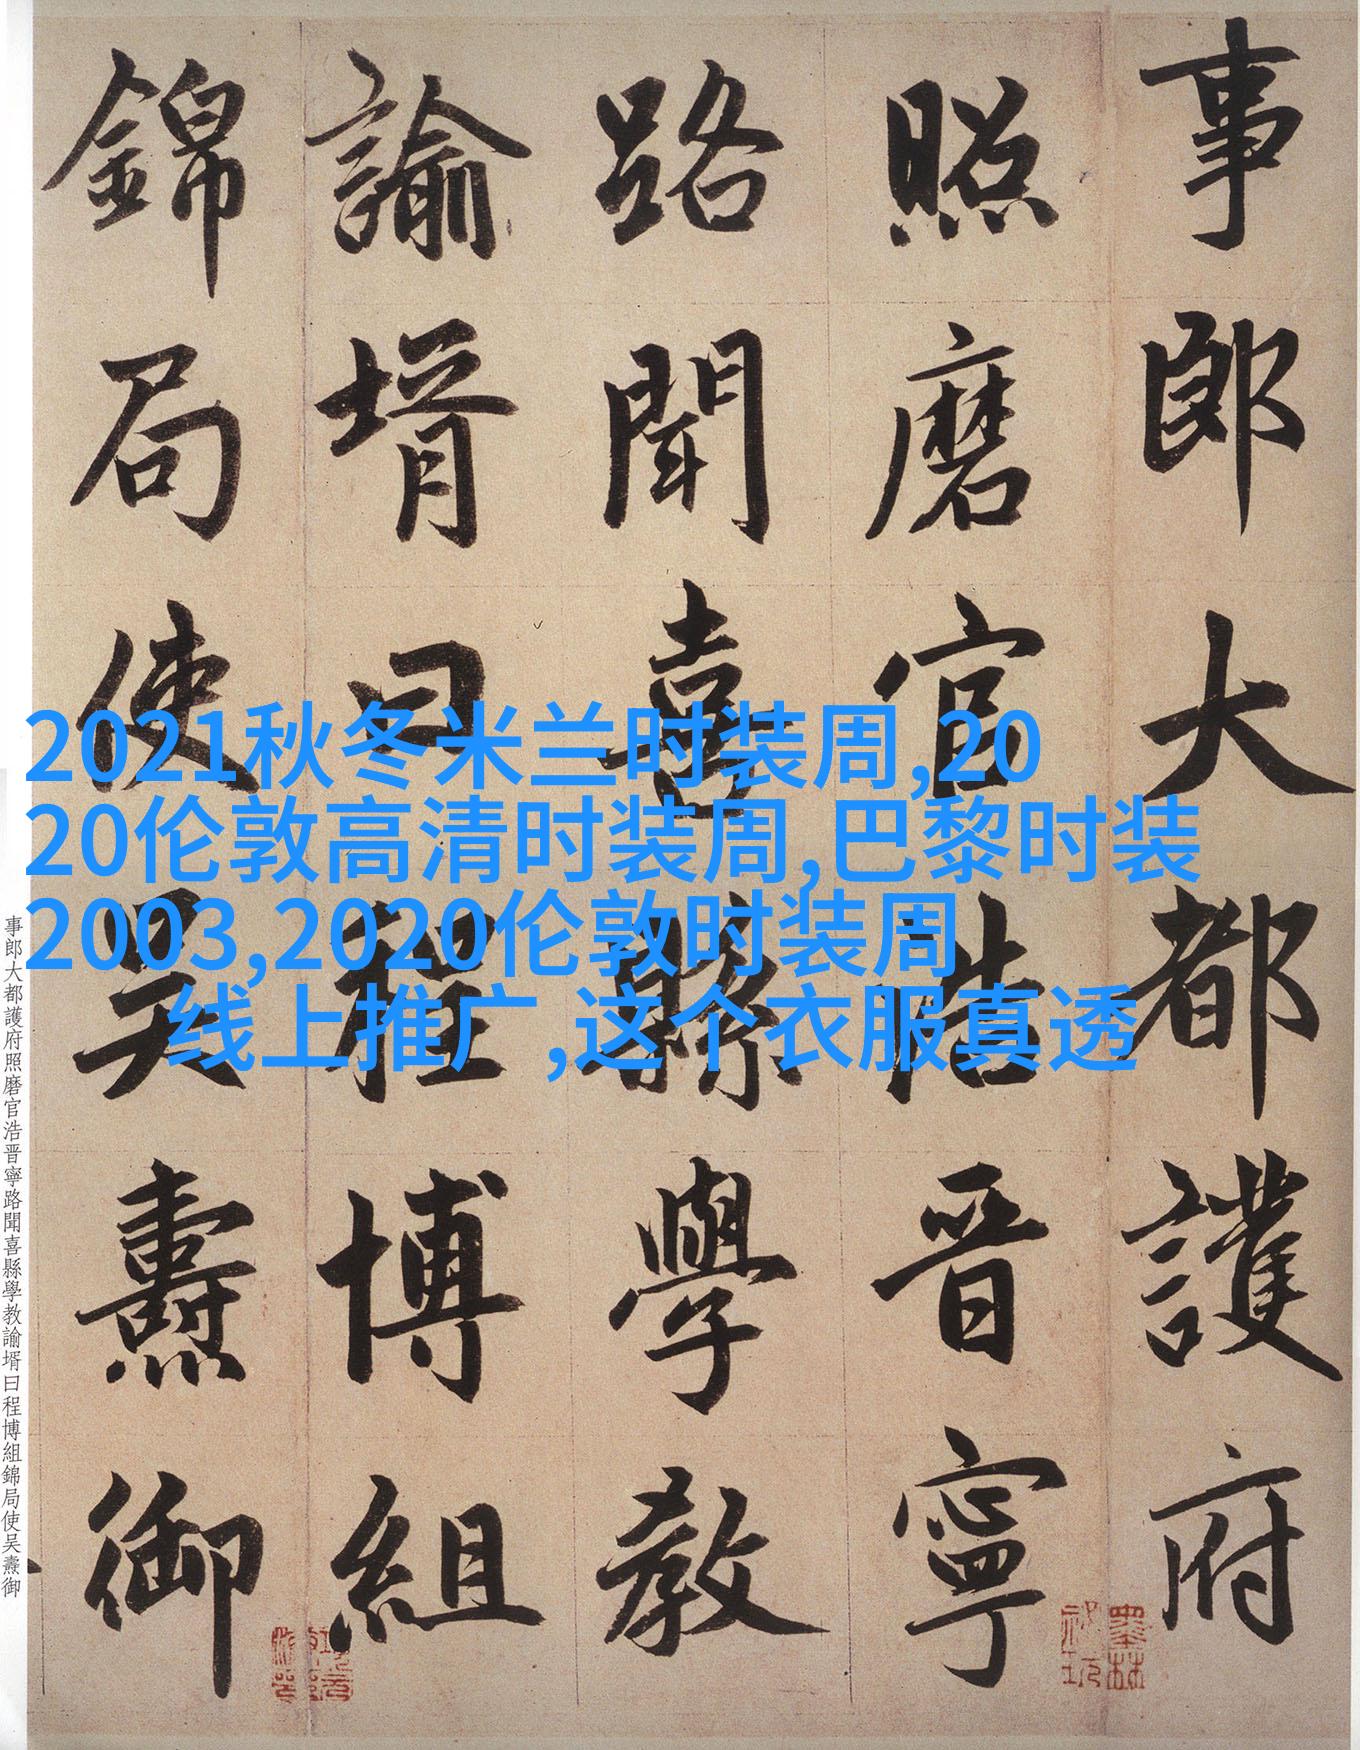 事郎大都護府
照磨官浩晋寧
路聞喜縣學教
諭壻曰程博組
錦局使吴燾御
2021秋冬米兰时装周,20
20伦敦高清时装周,巴黎时装
2003,2020伦敦时装周
线上推广,这个衣服真透
事郎大都護府照磨官浩晋寧路聞喜縣學教諭壻曰程博組錦局使吴燾御